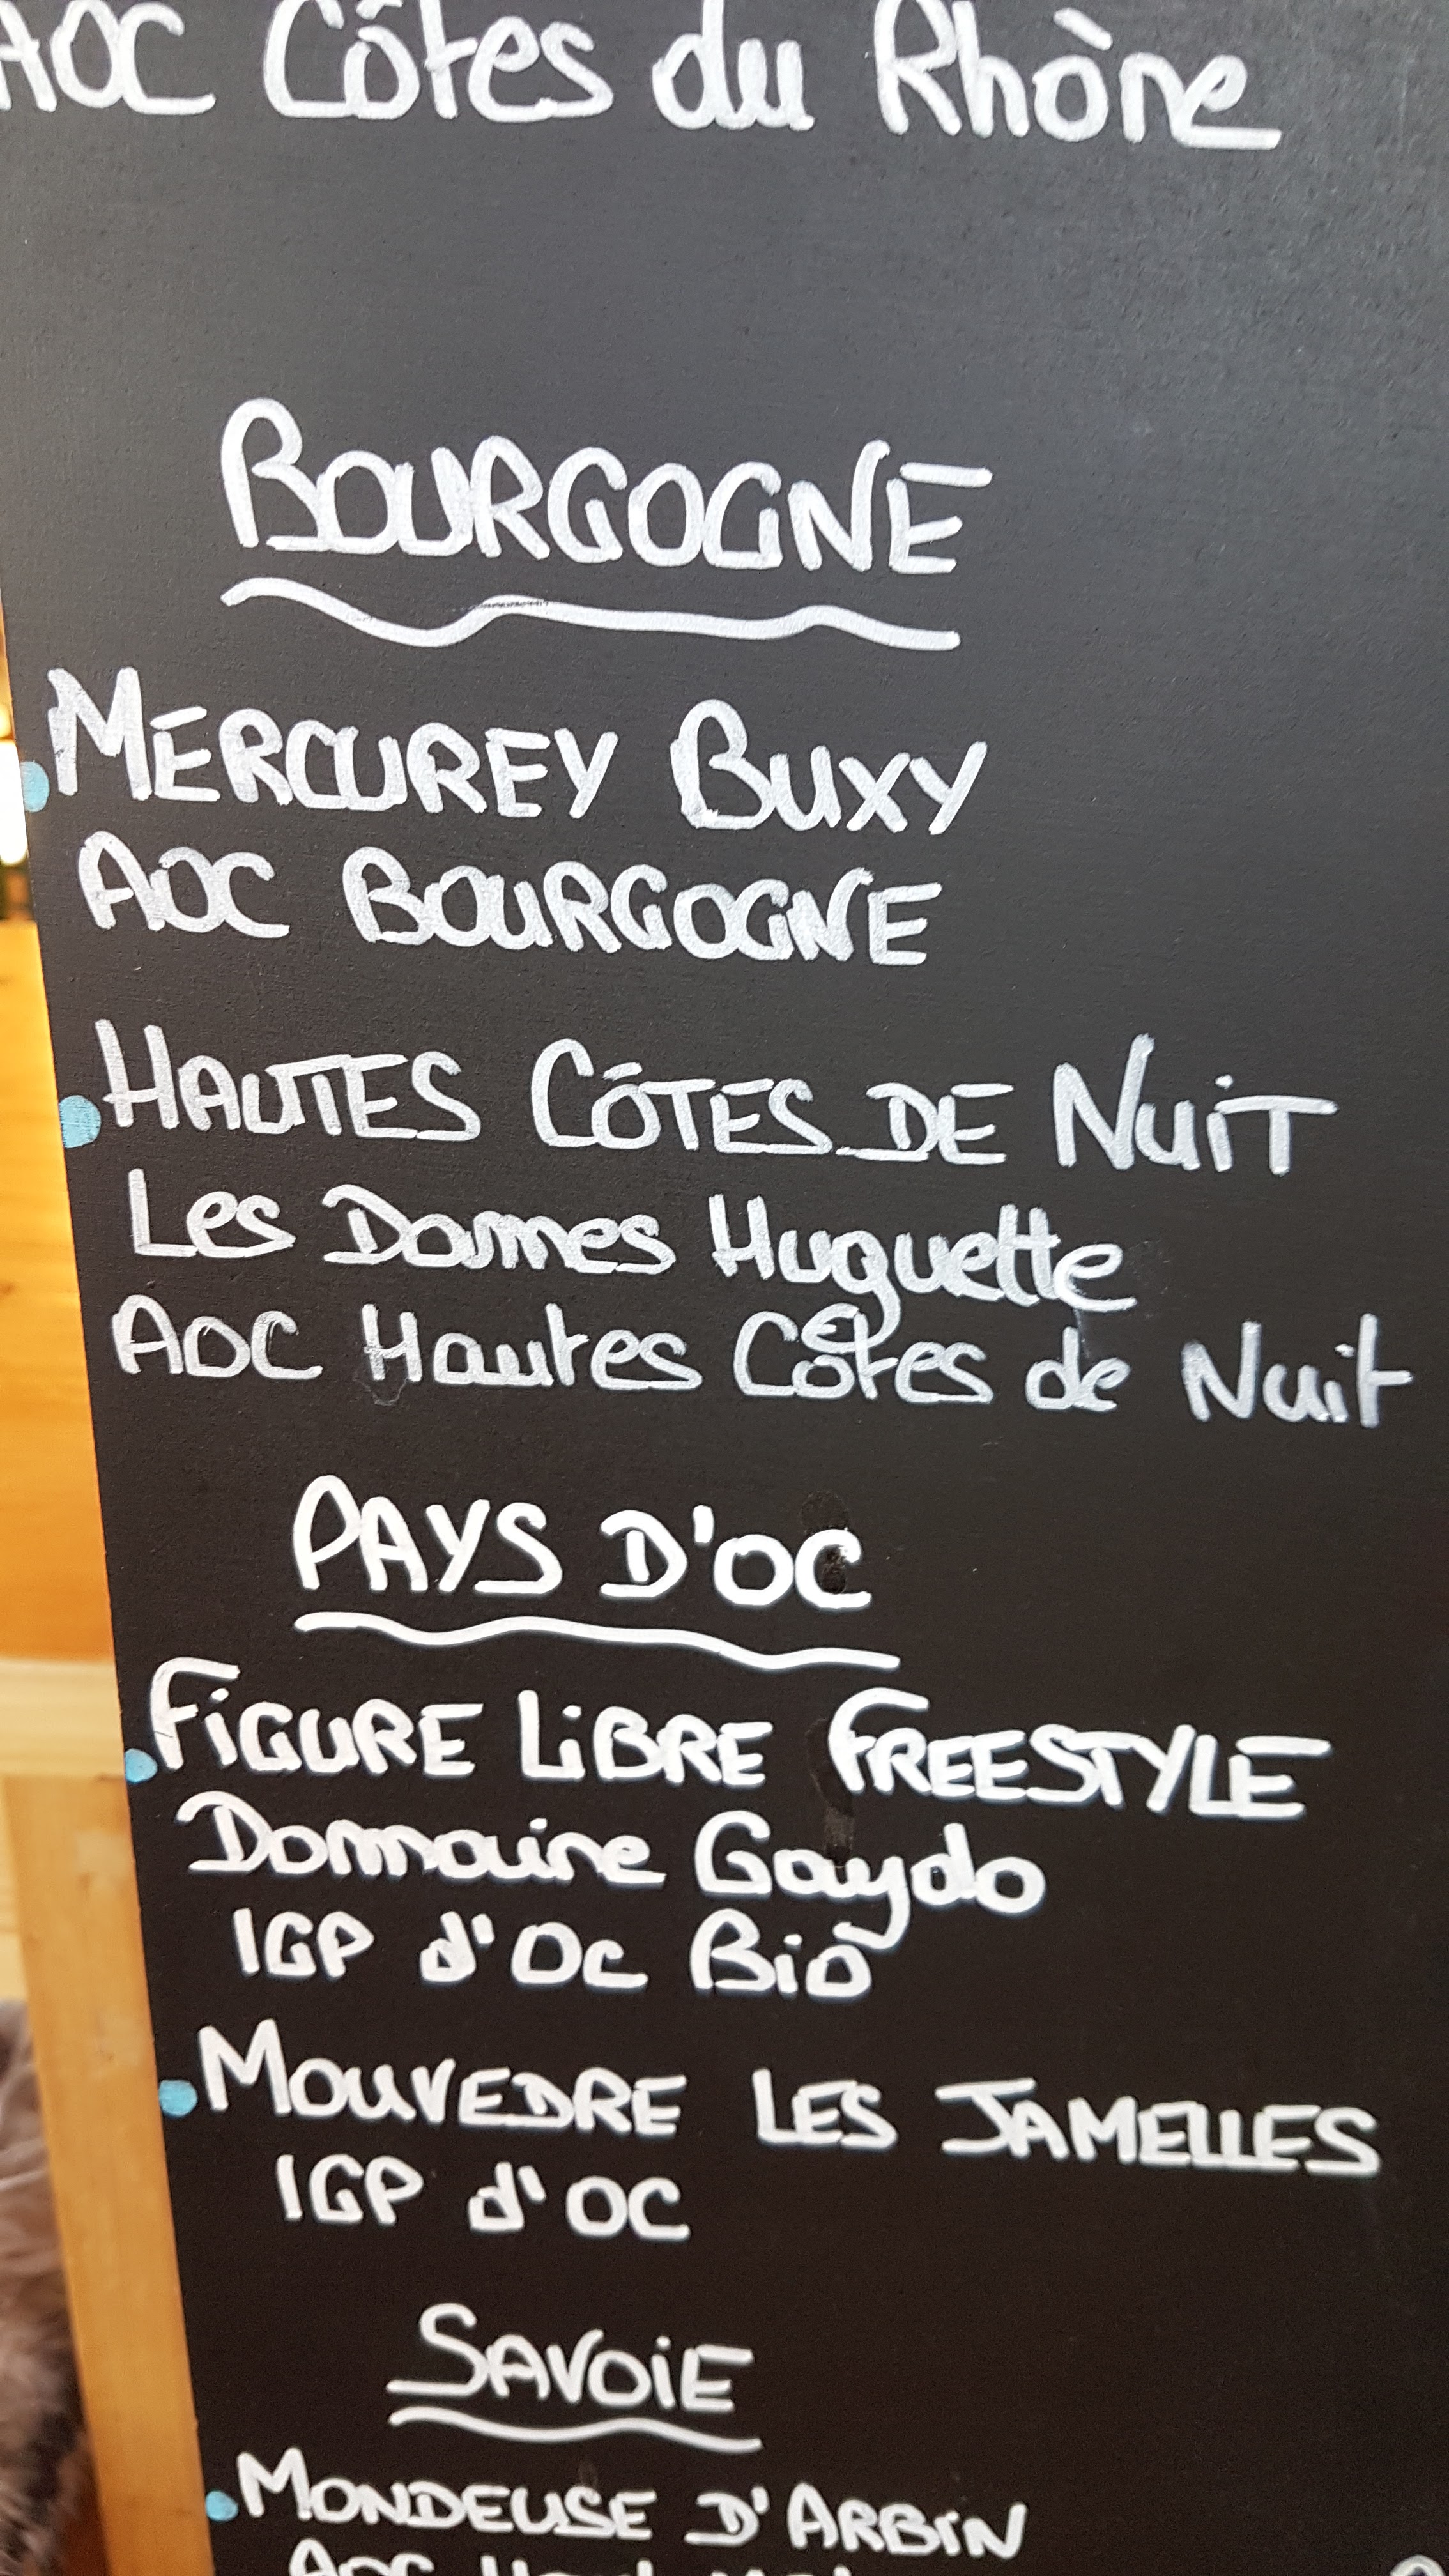 AOC Côtes du Rhône
BOURGOGNE
MERCUREY BUXY
AOC BOURGOGNE
HAUTES CÔTES DE NUIT
Les Dames Huguette
AOC Hautes Côtes de Nuit
PAYS D'OC
FiGURE LiBRE FREESTYLE
Domaine Gaydo
IGP d'Oc Bio
MOUVEDRE LES JAMELLES
IGP d'OC
SAVOiE
MONDEUSE D'ARBiN
AOC